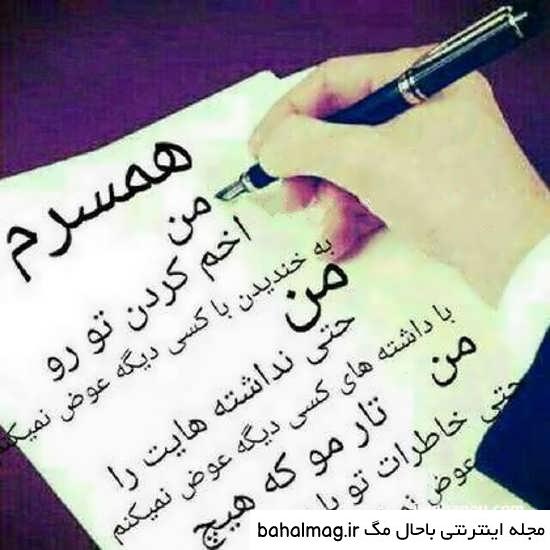 همسرم
من
اخم کردن تو رو
به خندیدن با کسی دیگه عوض نمیکنم
من
حتی نداشته هایت را
با داشته های کسی دیگه عوض نمیکنم
من
تار مو که هیچ
حتی خاطرات تو با
عوض
مجله اینترنتی باحال مگ bahalmag.ir